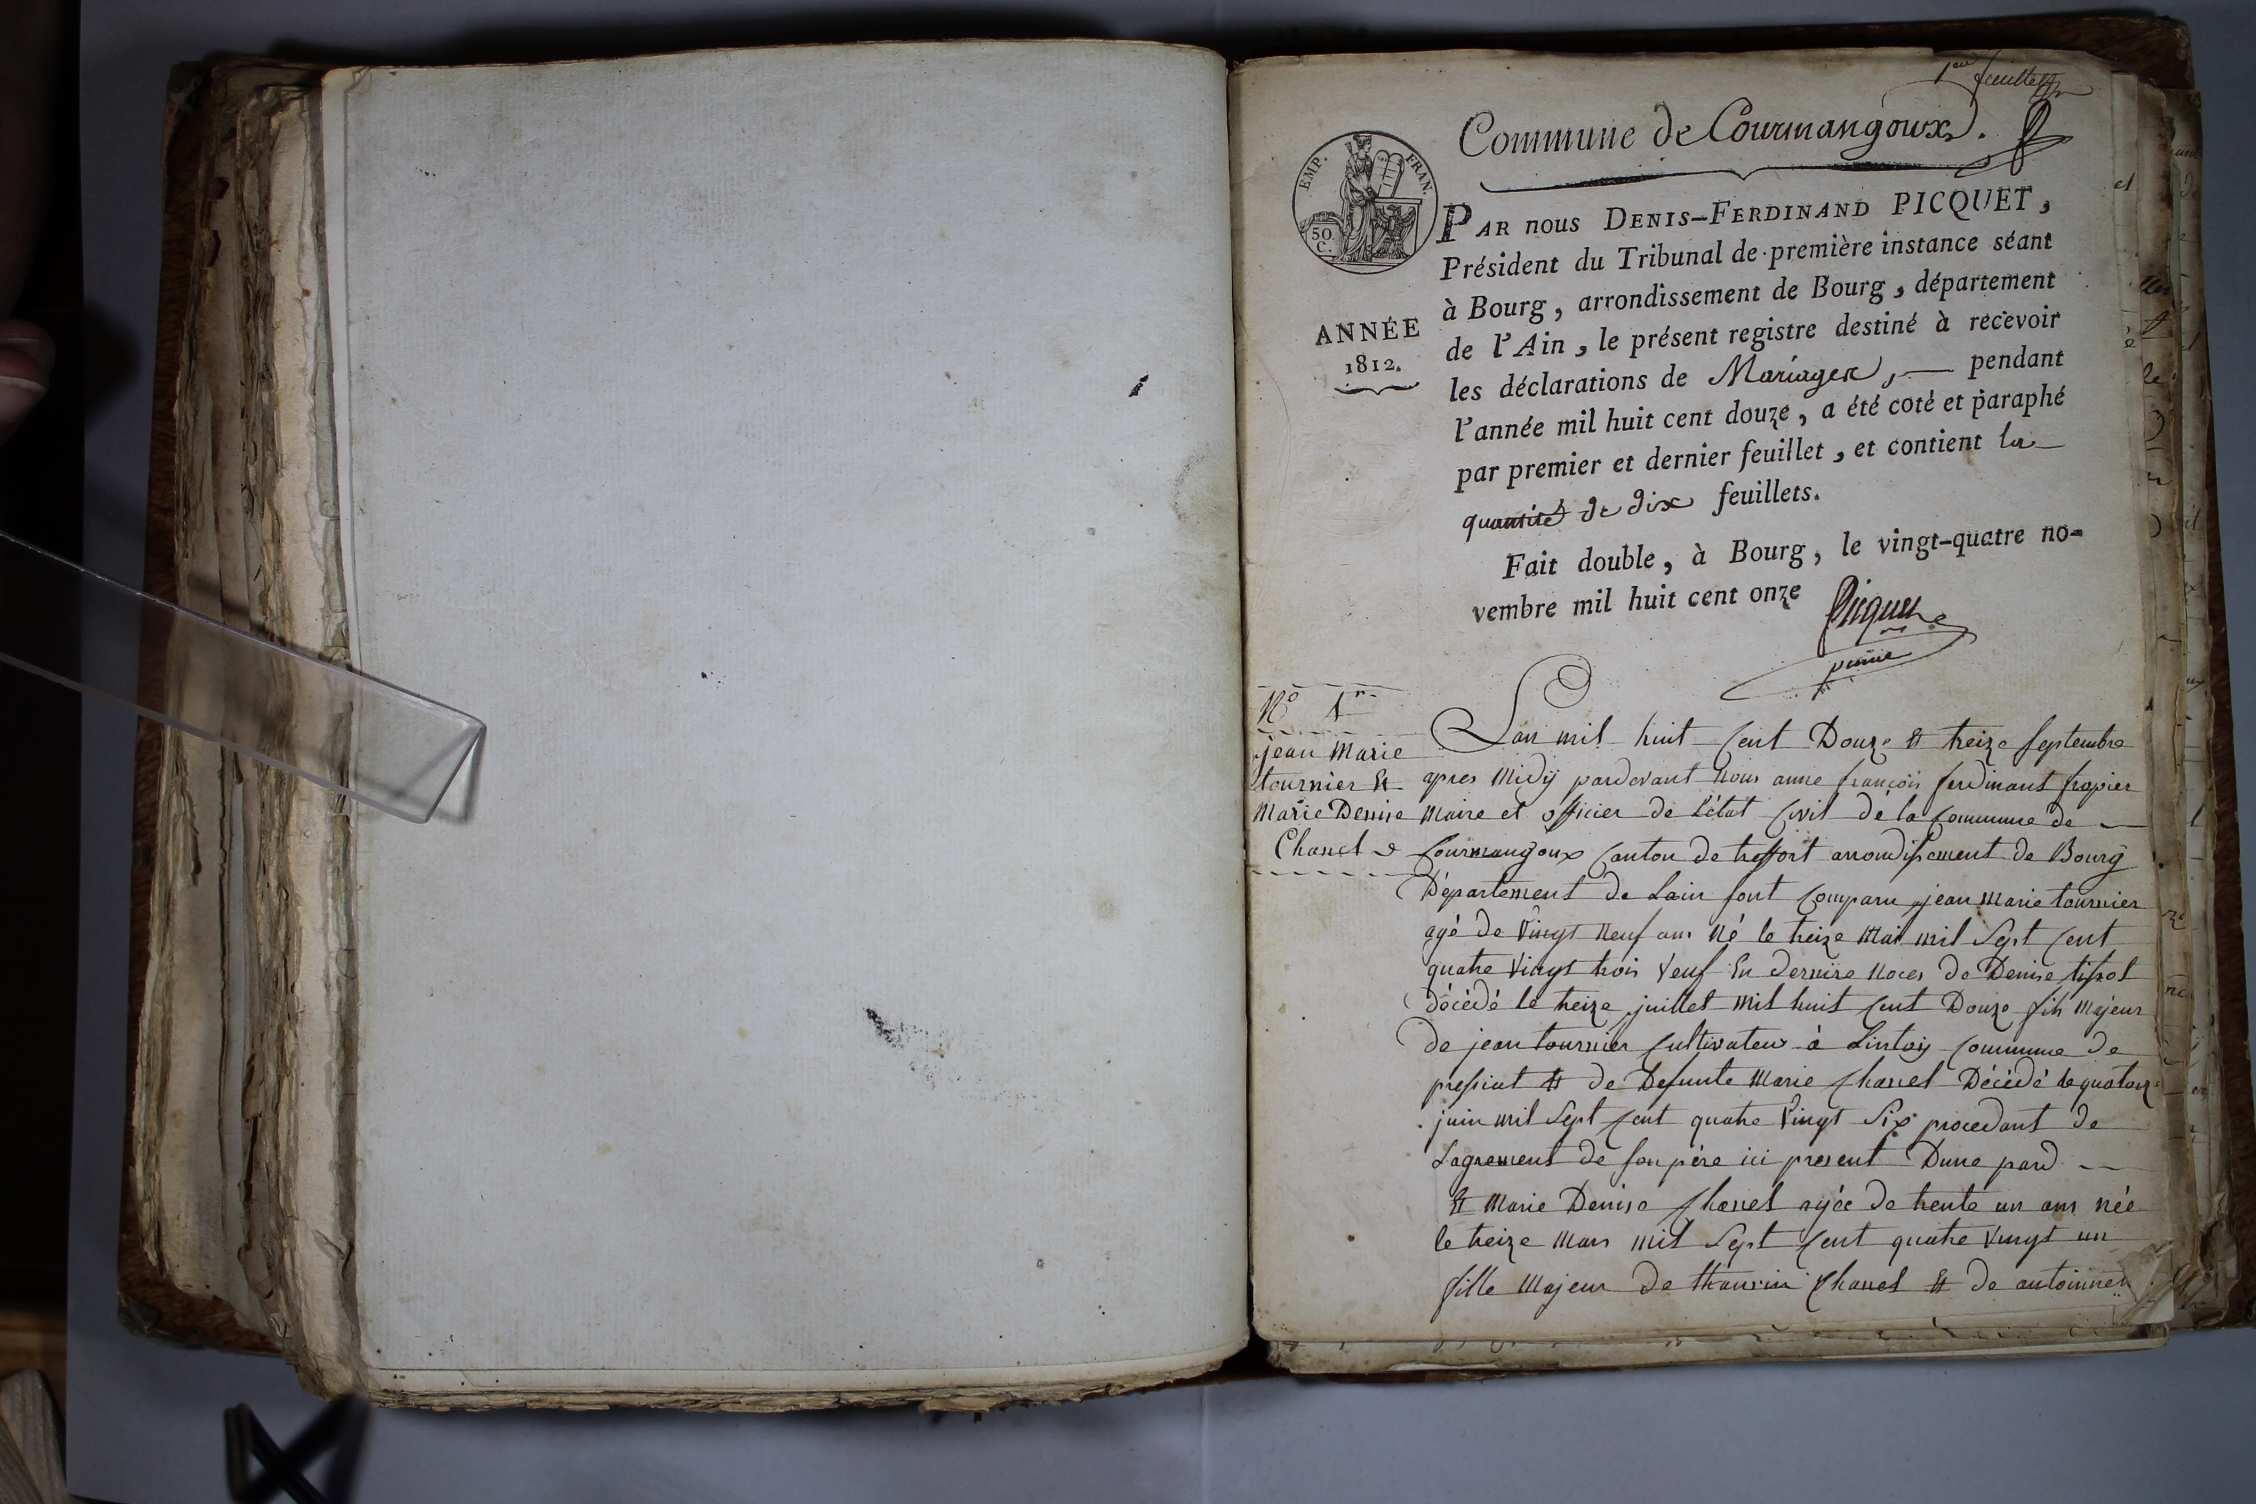 1er feuillet
Commune de Courmangoux.
EMP. FRAN.
50
C.
PAR nous DENIS-FERDINAND PICQUET,
Président du Tribunal de première instance séant
à Bourg, arrondissement de Bourg, département
ANNÉE
1812.
de l'Ain, le présent registre destiné à recevoir
les déclarations de Mariages, pendant
l'année mil huit cent douze, a été coté et paraphé
par premier et dernier feuillet, et contient la
quantité de dix feuillets.
Fait double, à Bourg, le vingt-quatre no-
vembre mil huit cent onze
Picquet
No 1er
jean Marie
tournier Et
Marie Denise
Chanel
Lan mil huit Cent Douze Et treize Septembre
apres Midÿ pardevant nous anne françois ferdinant
Maire et officier de Létat Civil de la Commune de
Courmangoux Canton de treffort arrondissement de Bourg
Département de Lain sont Comparu jean Marie tournier
agé de Vingt Neuf ans Né le treize Mai mil Sept Cent
quatre Vingt trois Veuf En derniere Noces de Denise
décédé le treize juillet Mil huit Cent Douze fils Majeur
de jean tournier Cultivateur à Commune de
pressiat Et de Defunte Marie Chanel Décédé le quatorze
juin mil Sept Cent quatre Vingt Six procedant de
Lagrement de son pére ici present Dune pard
Et Marie Denise Chanel agée de trente un ans née
le treize Mars mil Sept Cent quatre Vingt un
fille Majeur de Chanel Et de